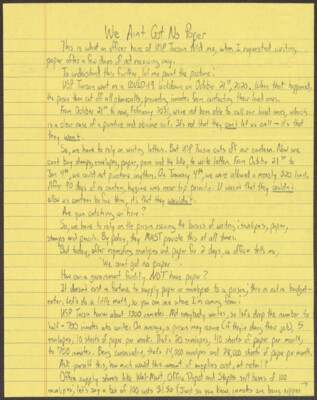 We Aint Got No Paper
This is what an officer here at USP Tucson told me, when I requested writing
paper after a few days of not receiving any.
To understand this further, let me paint the picture:
USP Tucson went on a COVID-19 lockdown on October 21st, 2020. When that happened,
the prison then cut off all phone calls, preventing inmates from contacting their loved ones.
From October 21st to now, February 2021, we've not been able to call our loved ones, which
is a clear case of a punitive and abusive act. It's not that they can't let us call - it's that
they won't.
So, we have to rely on writing letters. But USP Tucson cuts off our canteen. Now we
can't buy stamps, envelopes, paper, pens and the like, to write letters. From October 21st to
Jan 4th, we could not purchase anything. On January 4th we were allowed a measly
After 70 days of no canteen, hygiene was near top priority. It wasn't that they couldn't
allow us canteen before then, it's that they wouldn't.
Are you catching on here?
So, we have to rely on the prison issuing the basics of writing: envelopes, paper,
stamps and pencils. By policy, they MUST provide this at all times.
But today, after requesting envelopes and paper for 2 days, an officer tells me,
"We aint got no paper."
How can a government facility NOT have paper?
It doesn't cost a fortune to supply paper or envelopes to a prison; this is not a budget-
enter. Let's do a little math, so you can see where I'm coming from:
USP Tucson houses about 1500 inmates. Not everybody writes, so let's drop the number to
half - 700 inmates who writes. On average, a person may receive (if they're doing their job), 5
envelopes, 10 sheets of paper per week. That's 20 envelopes, 40 sheets of paper per month,
to 700 inmates. Being conservative, that's 14,000 envelopes and 28,000 sheets of paper per month.
Ask yourself this, how much would this amount of supplies cost, at retail?
Office supply stores like Wal-Mart, Office Depot and Staples sell boxes of 100
envelopes, let's say a box of 100 costs $1.50 (Just so you know, inmates are being ripped